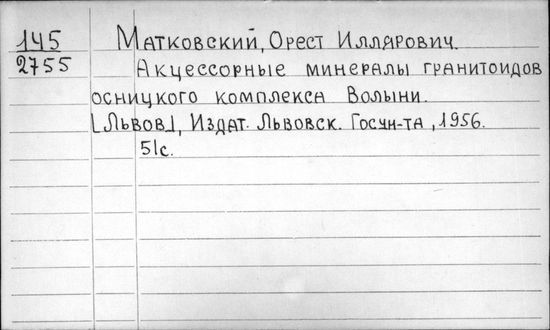 145
2755
Матковский, Орест Иллярович.
Акцессорные минералы гранитоидов
осницкого комплекса Волыни.
[Львов], Издат. Львовск. Госун-та, 1956.
51с.